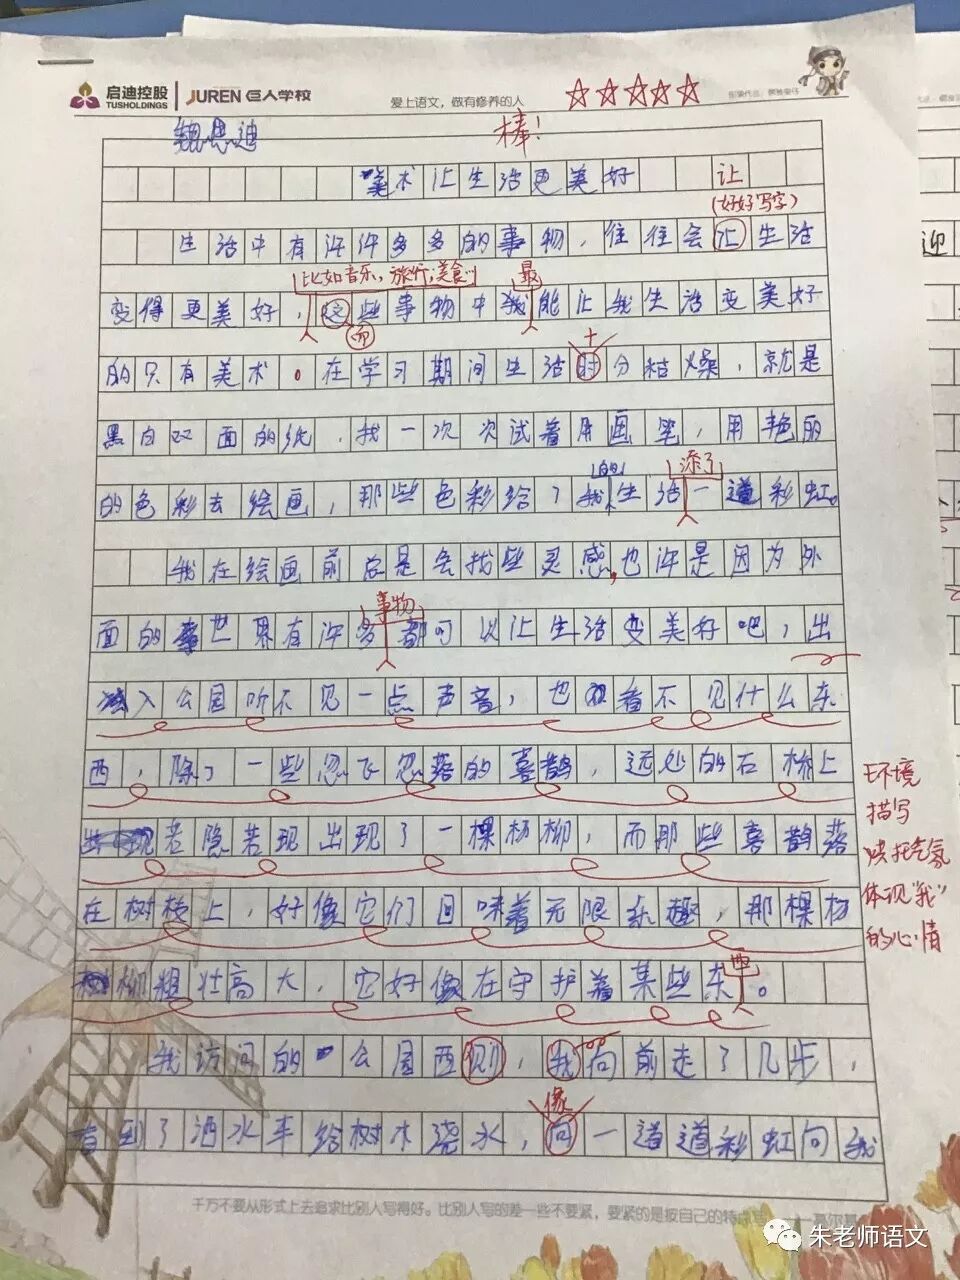 启迪控股 TUSHOLDINGS JUREN 巨人学校
爱上语文，做有修养的人
☆☆☆☆☆
魏思迪
棒！
美术让生活更美好
让
（好好写字）
生活中有许许多多的事物，往往会让生活
比如音乐，旅行，美食
最
变得更美好，这些事物中我能让我生活变美好
而
十
的只有美术。在学习期间生活时分枯燥，就是
黑白双面的纸，我一次次试着用画笔，用艳丽
的
添了
的色彩去绘画，那些色彩给了我生活一道彩虹。
我在绘画前总是会找些灵感，也许是因为外
事物
面的世界有许多都可以让生活变美好吧，出
入公园听不见一点声音，也看不见什么东
西，除了一些忽飞忽落的喜鹊，远处的石桥上
若隐若现出现了一棵杨柳，而那些喜鹊落
在树枝上，好像它们回味着无限乐趣，那棵杨
环境
描写
烘托气氛
体现“我”
的心情
西
柳粗壮高大，它好像在守护着某些东。
我访问的公园西侧，我向前走了几步，
像
看到了洒水车给树木浇水，向一道道彩虹向我
千万不要从形式上去追求比别人写得好。比别人写的差一些不要紧，要紧的是按自己的特点写
朱老师语文
迎